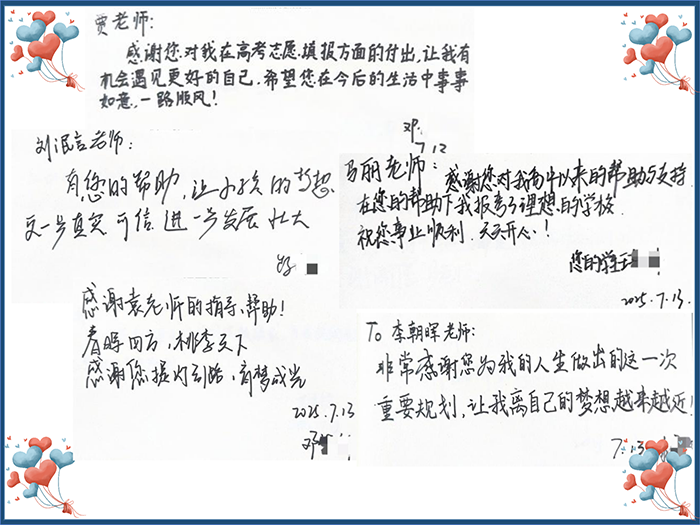 贾老师:
感谢您对我在高考志愿填报方面的付出,让我有
机会遇见更好的自己.希望您在今后的生活中事事
如意,一路顺风!
邓
7.12
刘泯言老师:
有您的帮助,让小孩的梦想
更一步真实可信进一步发展壮大
马丽老师:
感谢您对我以来的帮助与支持.
在您的帮助下我报考了理想的学校.
祝您事业顺利.天天开心!
您的学生
2025.7.13
感谢袁老师的指导、帮助!
春晖四方,桃李天下
感谢您提灯引路,育梦成光
2025.7.13
邓
To 李朝晖老师:
非常感谢您为我的人生做出的这一次
重要规划,让我离自己的梦想越来越近!
7.13